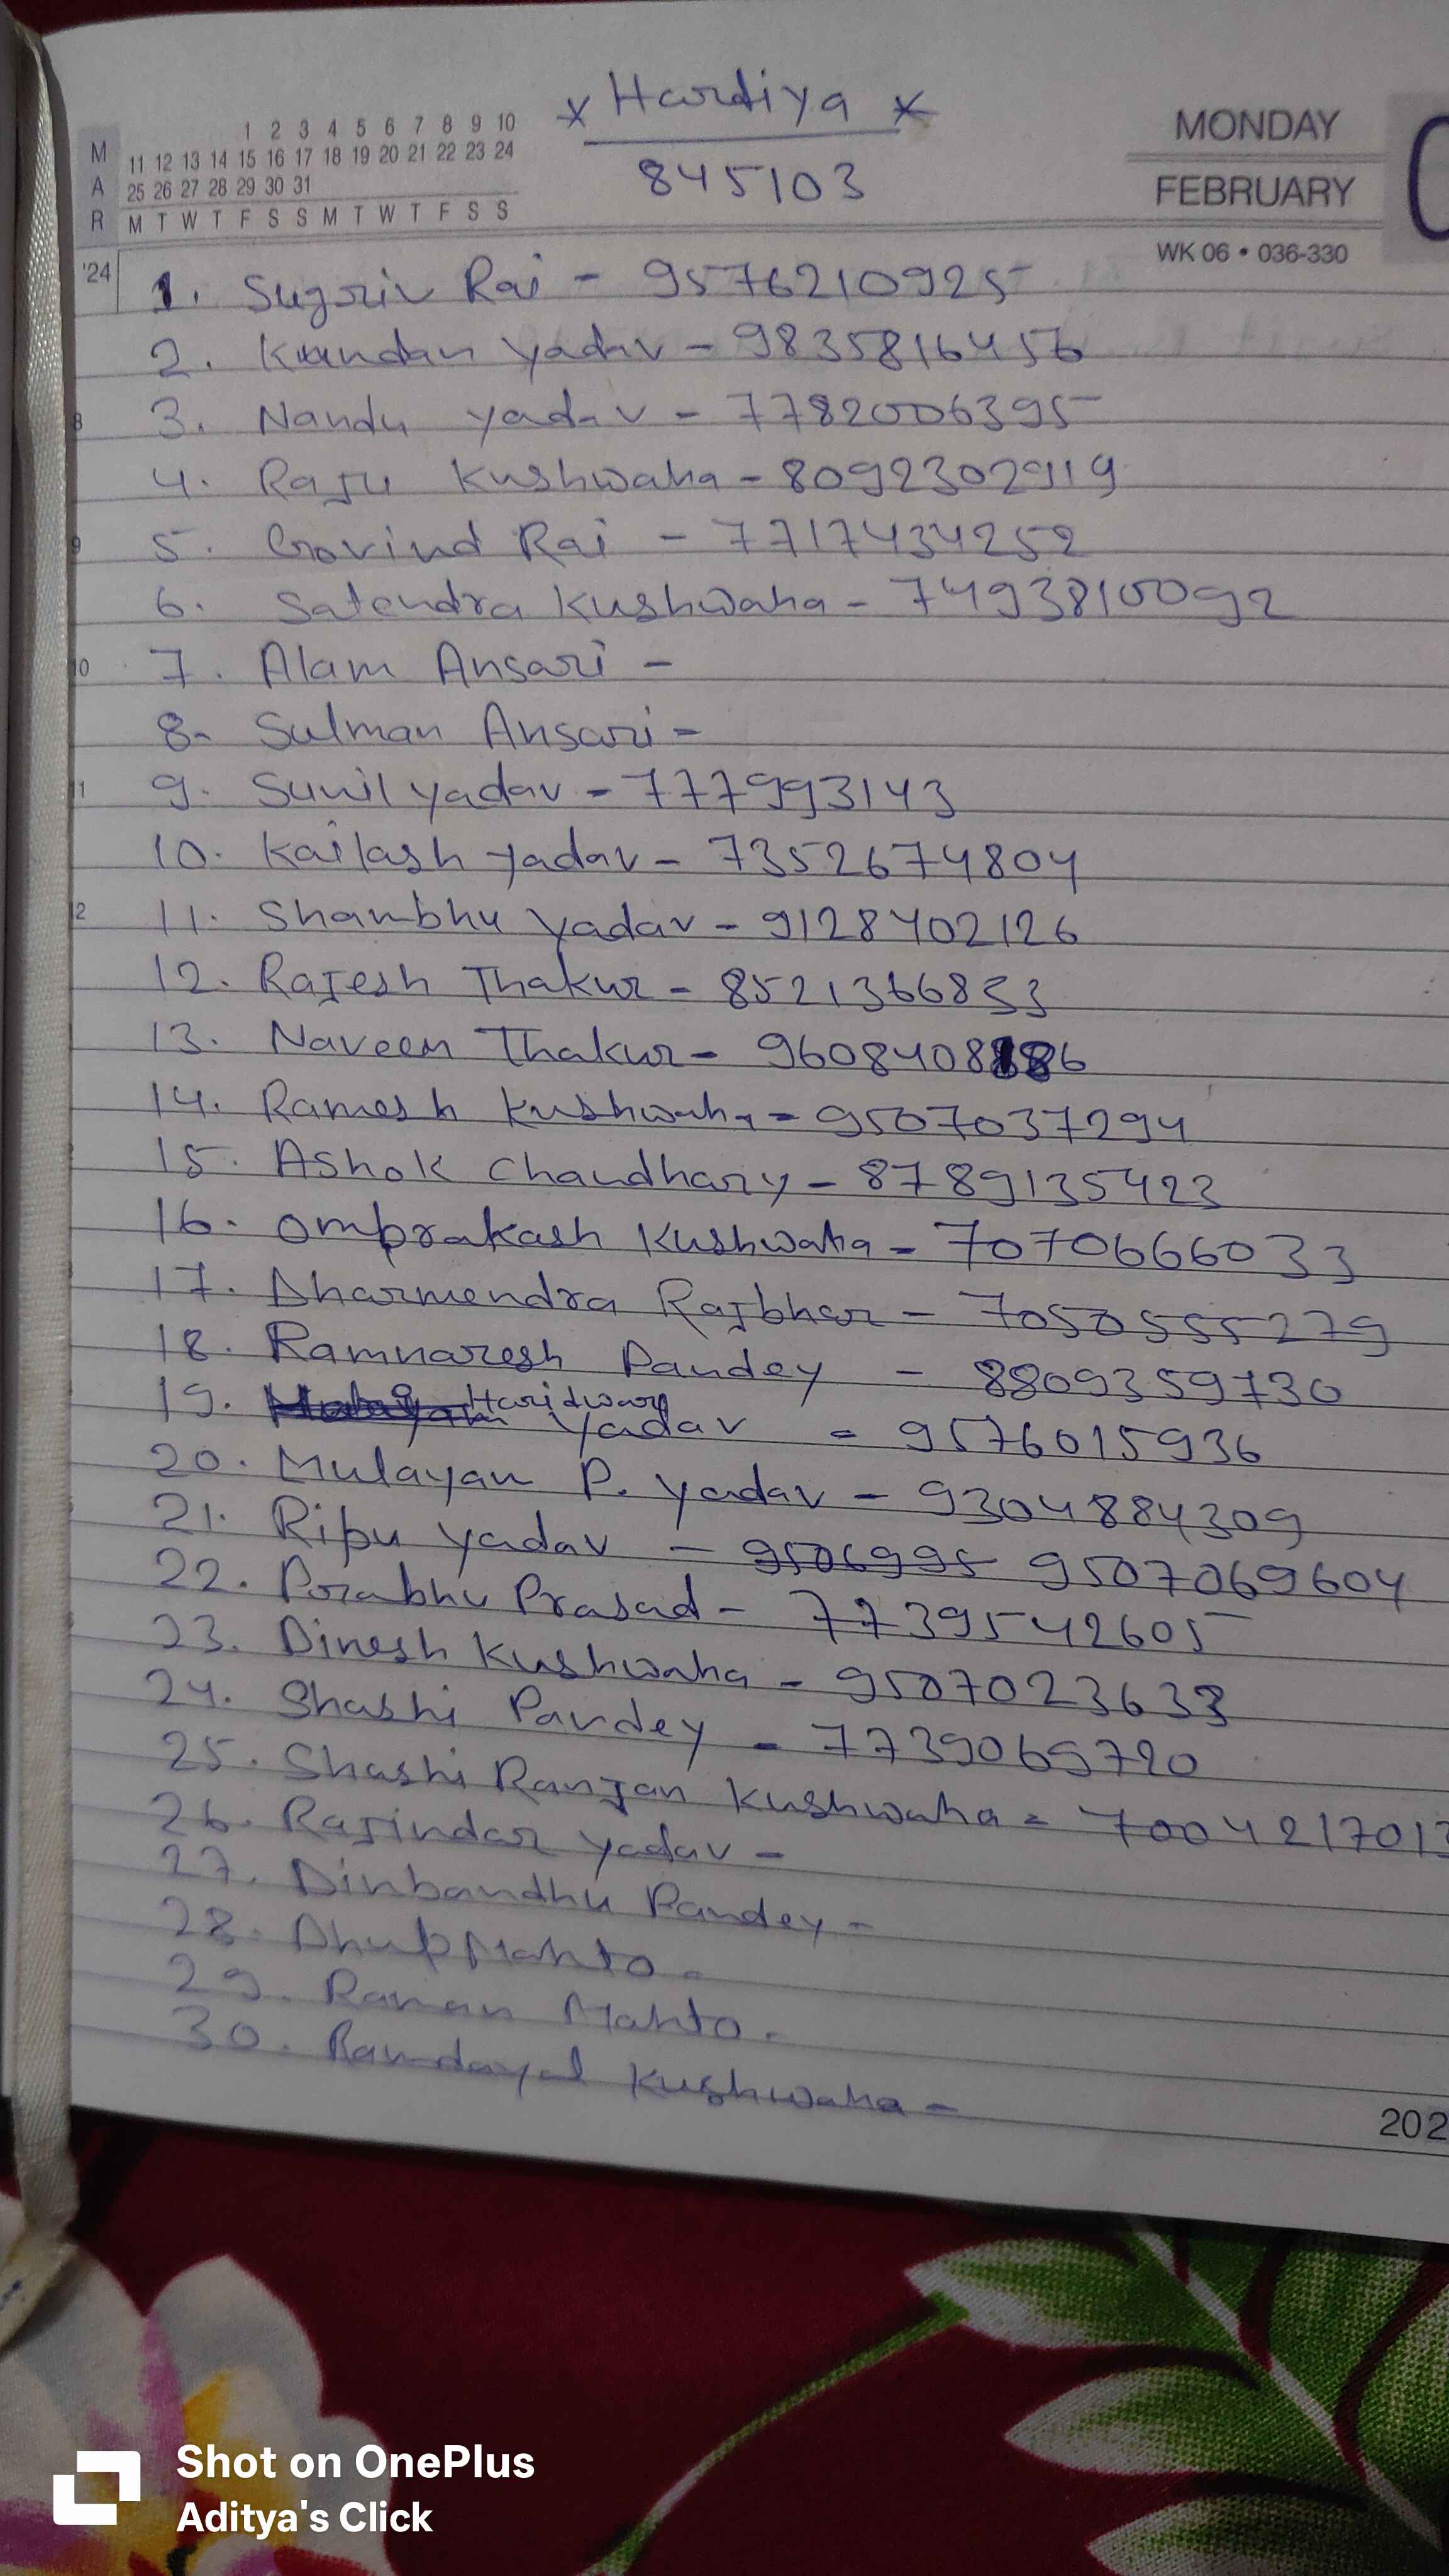 * Hardiya *
845103
1 2 3 4 5 6 7 8 9 10
M 11 12 13 14 15 16 17 18 19 20 21 22 23 24
A 25 26 27 28 29 30 31
R M T W T F S S M T W T F S S
MONDAY
FEBRUARY
WK 06 • 036-330
'24
1. Sugriv Rai - 9576210925
2. Kundan yadav - 9835816456
8 3. Nandu yadav - 7782006395
4. Raju Kushwaha - 8092302919
9 5. Govind Rai - 7717434252
6. Satendra Kushwaha - 7493810092
10 7. Alam Ansari -
8. Salman Ansari -
11 9. Sunil yadav - 777993143
10. Kailash yadav - 7352674804
12 11. Shambhu yadav - 9128402126
12. Rajesh Thakur - 8521366853
13. Naveen Thakur - 9608408186
14. Ramesh Kushwaha - 9507037294
15. Ashok Chaudhary - 8789135423
16. Omprakash Kushwaha - 7070666033
17. Dharmendra Rajbhar - 7050555279
18. Ramnaresh Pandey - 8809359730
19. Haridwar yadav - 9576015936
20. Mulayam P. yadav - 9304884309
21. Ripu yadav - 9506995 9507069604
22. Prabhu Prasad - 7739542605
23. Dinesh Kushwaha - 9507023633
24. Shashi Pandey - 7739065720
25. Shashi Ranjan Kushwaha - 7004217013
26. Rajindar yadav -
27. Dinbandhu Pandey -
28. Dhup Mahto -
29. Raman Mahto -
30. Ramdayal Kushwaha -
202
Shot on OnePlus
Aditya's Click